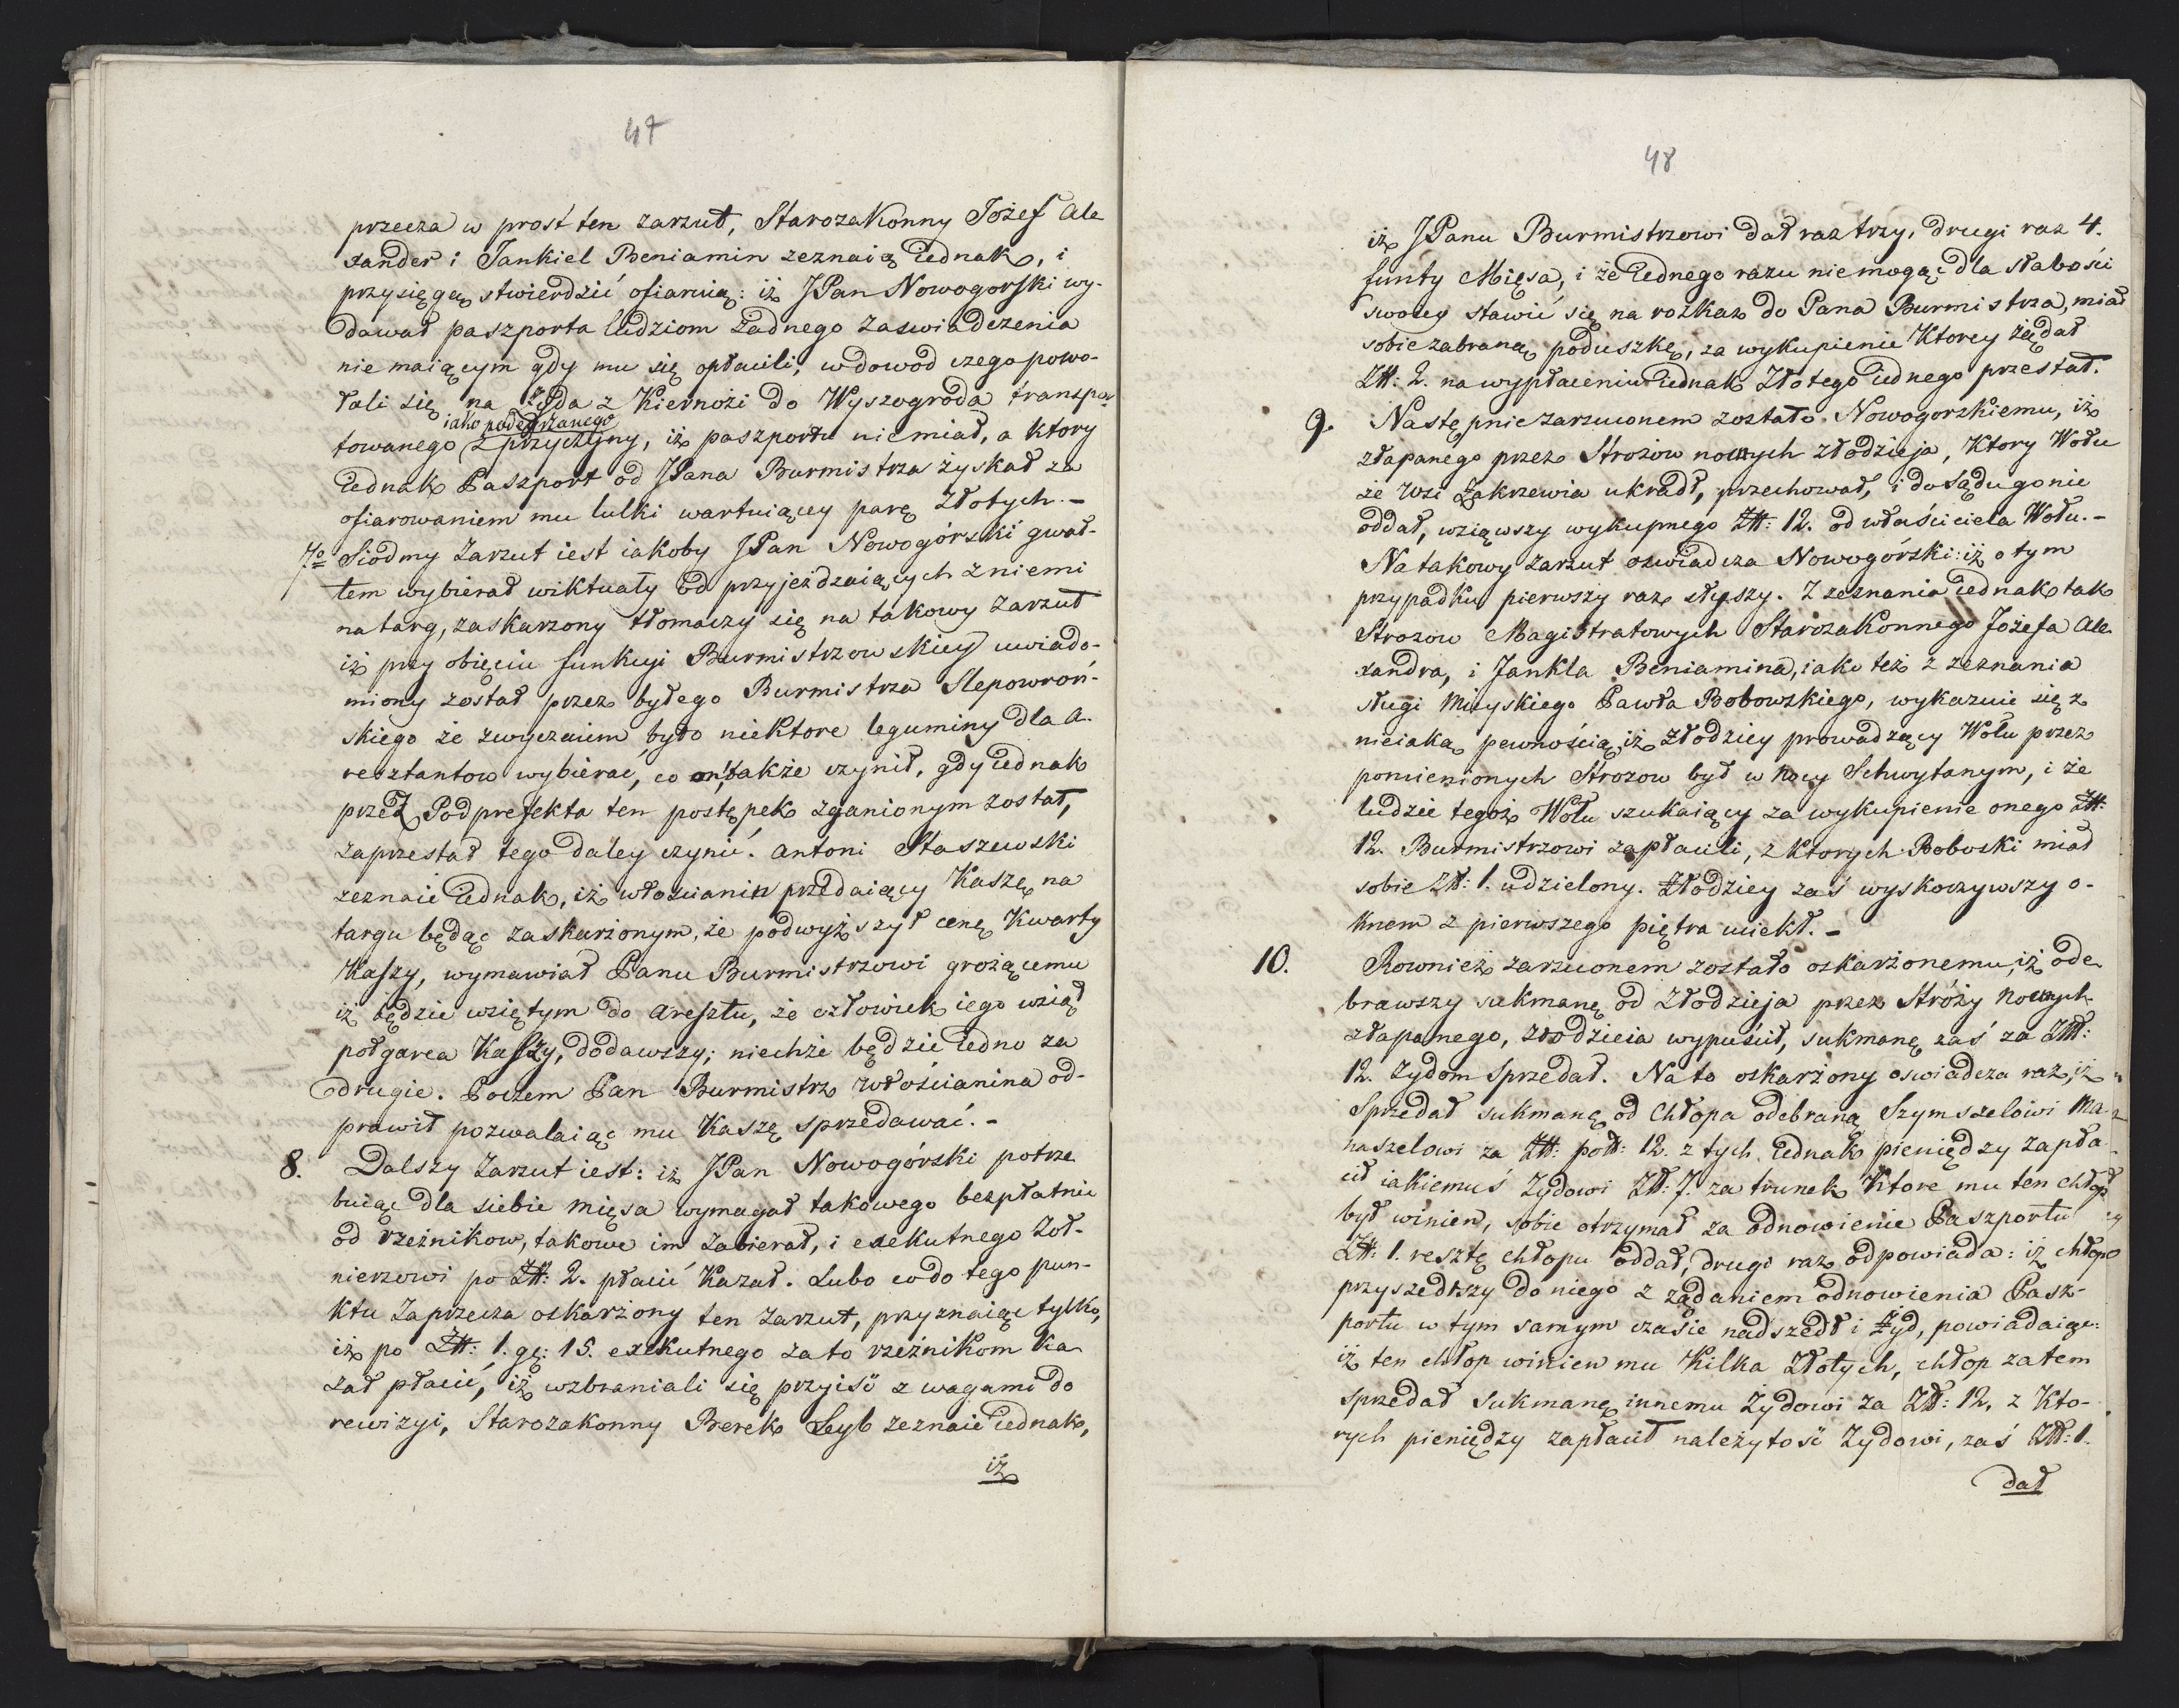 47
przecza w prost ten zarzut, Starozakonny Jożef Ale
xander i Jankiel Beniamin zeznaią iednak, i
przysięgą stwierdzić ofiaruią: iż JPan Nowogorski wy-
dawał paszporta ludziom żadnego zaswiadczenia
nie maiącym gdy mu się opłacili, w dowod czego powo-
łali się na Żyda z Kiernozi do Wyszogroda transpor
iako podeyrzanego
towanego z przyczyny, iż paszportu nie miał, a ktory
iednak Paszport od JPana Burmistrza żyskał za
ofiarowaniem mu lulki wartuiącey parę Złotych. -
7o Siodmy Zarzut iest iakoby JPan Nowogórski gwał-
tem wybierał wiktuały od przyjeżdzaiących z niemi
na targ, zaskarzony tłomaczy się na takowy zarzut
iż przy obięciu funkcyi Burmistrzowskiey uwiado-
miony został przez byłego Burmistrza Slepowroń-
skiego że zwyczaiem było niektore leguminy dla a-
resztantow wybierać, co on także czynił, gdy iednak
przez Podprefekta ten postępek zganionym został,
zaprzestał tego daley czynić. Antoni Staszewski
zeznaie iednak, iż włoscianin przedaiący Kaszę na
targu będąc zaskarżonym, że podwyższył cenę Kwarty
Kaszy, wymawiał Panu Burmistrzowi grożącemu
iż będzie wziętym do Aresztu, że człowiek iego wziął
poł garca Kaszy, dodawszy; niechże będzie iedno za
drugie. Poczem Pan Burmistrz włościanina od-
prawił pozwalaiąc mu Kaszę sprzedawać. -
8. Dalszy Zarzut iest: iż JPan Nowogórski potrze
buiąc dla siebie mięsa wymagał takowego bezpłatnie
od rzeżnikow, takowe im zabierał, i exekutnego Żoł-
nierzowi po Złł: 2. płacić Kazał. Lubo co do tego pun-
ktu zaprzecza oskarżony ten zarzut, przyznaiąc tylko,
iż po Złł: 1. gę: 15. exekutnego za to rzeżnikom Ka
zał płacić, iż wzbraniali się przyiść z wagami do
rewizyi, Starozakonny Berek Leyb zeznaie iednak,
iż
48
iż JPanu Burmistrzowi dał raz trzy, drugi raz 4.
funty Mięsa, i że iednego razu nie mogąc dla słabości
swoiey stawić się na rozkaz do Pana Burmistrza, miał
sobie zabraną poduszkę, za wykupienie Ktorey żądał
Złł: 2. na wypłaceniu iednak Złotego iednego przestał.
9. Następnie zarzuconem zostało Nowogorskiemu, iż
złapanego przez Strożow nocnych złodzieja, Ktory Wołu
ze wsi Zakrzewia ukradł, przechował, i do Sądu go nie
oddał, wziąwszy wykupnego Złł: 12. od właściciela Wołu. -
Na takowy zarzut oswiadcza Nowogórski: iż o tym
przypadku pierwszy raz słyszy. Z zeznania iednak tak
Strozow Magistratowych Starozakonnego Jożefa Ale-
xandra, i Jankla Beniamina, iako też z zeznania
sługi Mieyskiego Pawła Bobowskiego, wykazuie się z
nieiaką pewnością, iż złodziey prowadzący Wołu przez
pomienionych Strozow był w nocy Schwytanym, i że
ludzie tegoż Wołu szukaiący za wykupienie onego Złł:
12. Burmistrzowi zapłacili, z Ktorych Boboski miał
sobie Zł: 1. udzielony. Złodziey zaś wyskoczywszy o-
knem z pierwszego piętra uciekł. -
10. Rownież zarzuconem zostało oskarżonemu, iż ode
brawszy sukmanę od złodzieja przez Stróży nocnych
złapanego, złodzieia wypuścił, sukmanę zaś za Złł:
12. Żydom Sprzedał. Na to oskarżony oswiadcza raz, iż
Sprzedał sukmanę od Chłopa odebraną Szymszelowi Ma-
naszelowi za Złł: poł: 12. z tych iednak pieniędzy zapła
cił iakiemuś Żydowi Zł: 7. za trunek Ktore mu ten chłop
był winien, sobie otrzymał za odnowienie Paszportu
Zł: 1. resztę chłopu oddał, drugi raz odpowiada: iż chłop
przyszedszy do niego z żądaniem odnowienia Pasz-
portu w tym samym czasie nadszedł i Żyd, powiadaiąc:
iż ten chłop winien mu Kilka Złotych, chłop zatem
sprzedał Sukmanę innemu Żydowi za Zł: 12, z Kto-
rych pieniędzy zapłacił należytość Żydowi, zaś Złł: 1.
dał